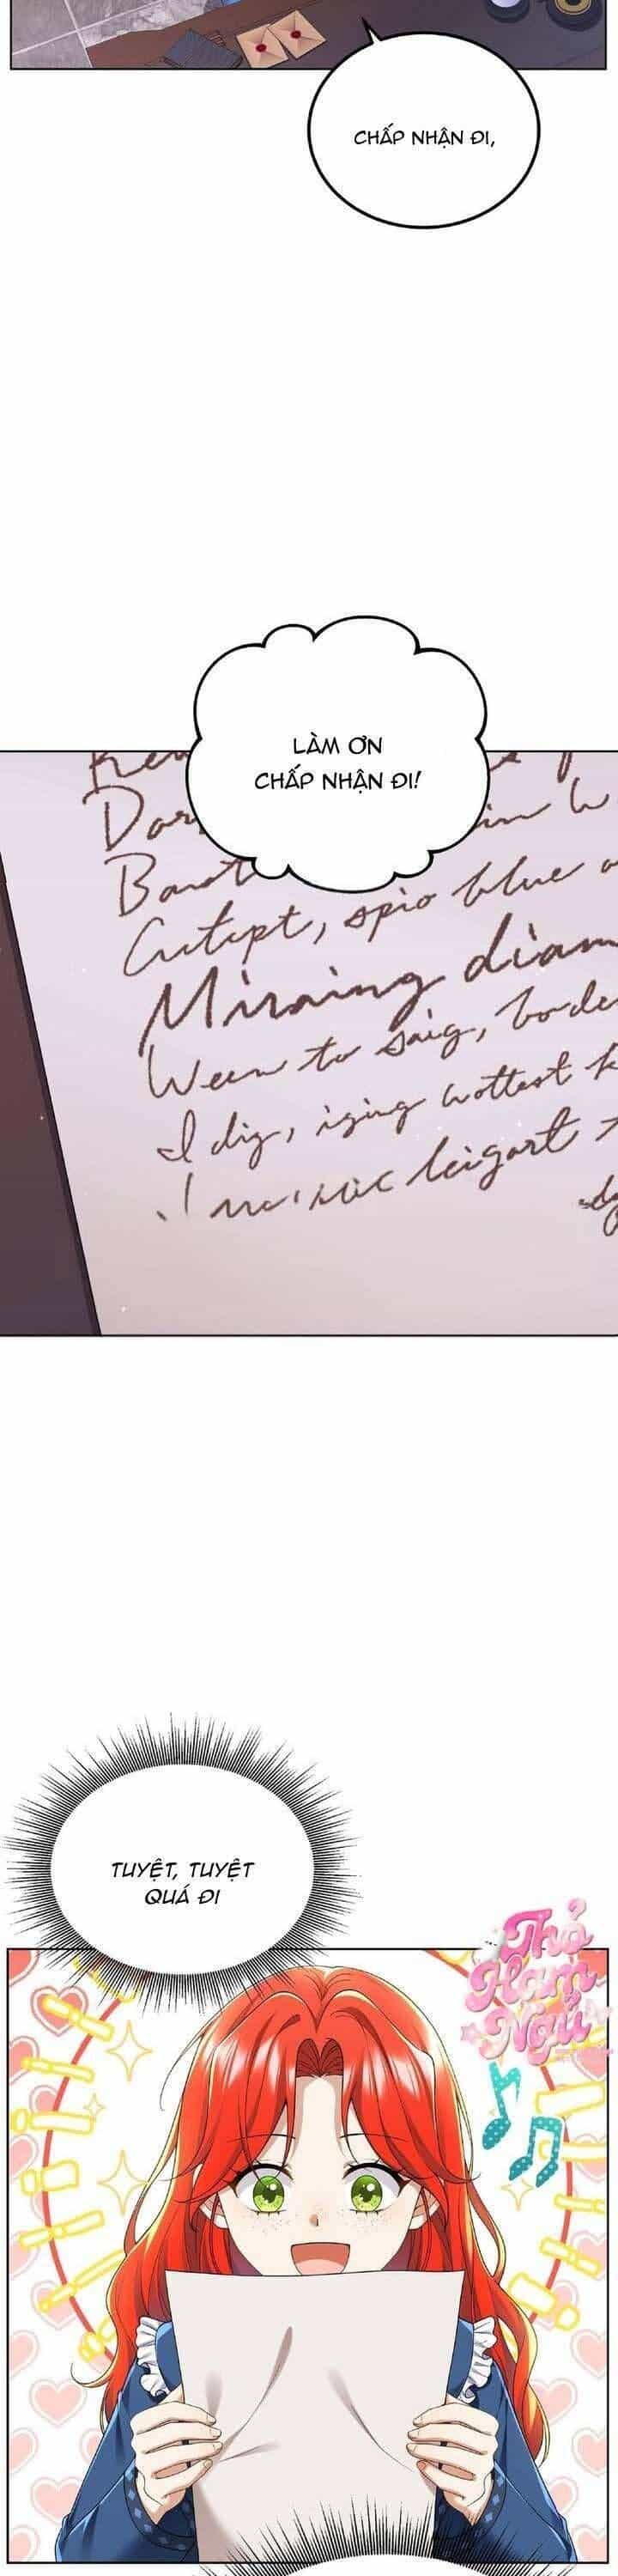 CHẤP NHẬN ĐI,
LÀM ƠN
CHẤP NHẬN ĐI!
Cutept, spio blue
Miraing diam
Ween to saig, borde
I dig, iging wottest k
leigart
TUYỆT, TUYỆT
QUÁ ĐI
Thỏ
Ham
Ngủ